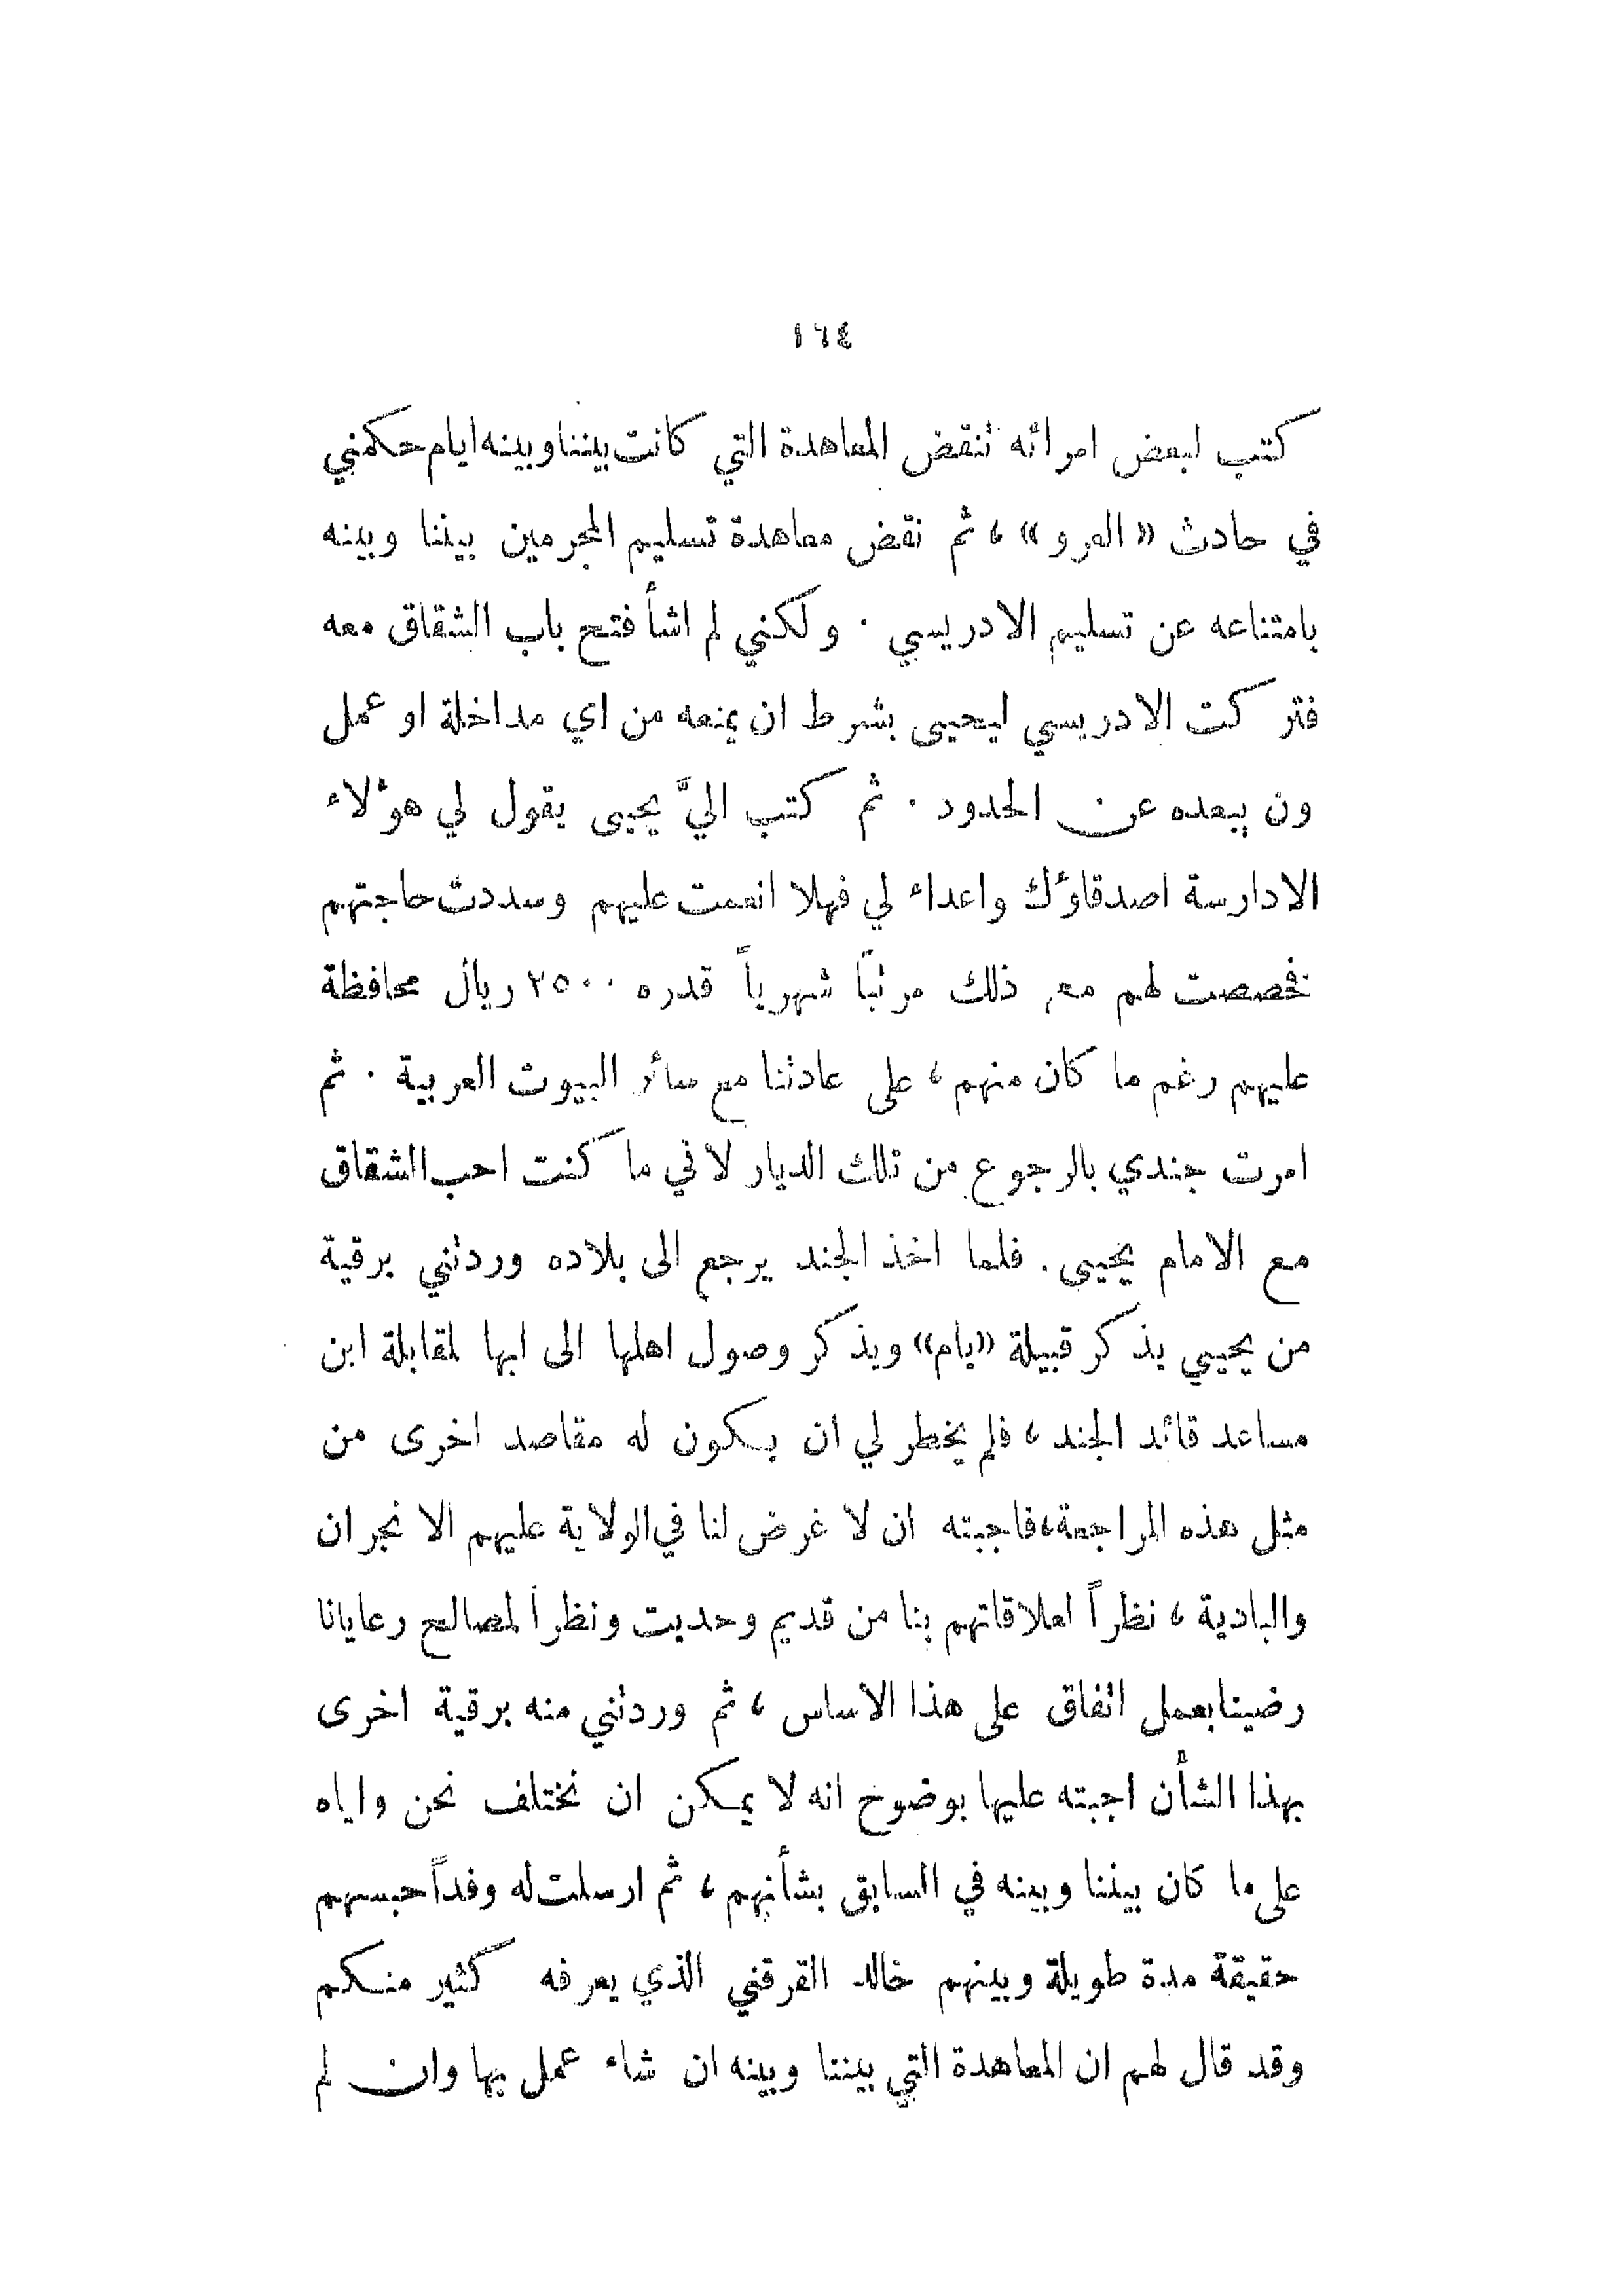 ١٦٤
كتب لبعض امرائه تنقض المعاهدة التي كانت بيننا وبينه ايام حكمني
في حادث « العرو » ، ثم نقض معاهدة تسليم المجرمين بيننا وبينه
بامتناعه عن تسليم الادريسي . ولكني لم اشأ فتح باب الشقاق معه
فتركت الادريسي ليحيى بشرط ان يمنعه من اي مداخلة او عمل
ون يبعده عن الحدود . ثم كتب اليَّ يحيى يقول لي هؤلاء
الادارسة اصدقاؤك واعداء لي فهلا انعمت عليهم وسددت حاجتهم
فخصصت لهم مع ذلك مرتباً شهرياً قدره ٢٥٠٠ ريال محافظة
عليهم رغم ما كان منهم ، على عادتنا مع سائر البيوت العربية . ثم
امرت جندي بالرجوع من تلك الديار لاني ما كنت احب الشقاق
مع الامام يحيى . فلما اخذ الجند يرجع الى بلاده وردتني برقية
من يحيى يذكر قبيلة «يام» ويذكر وصول اهلها الى ابها لمقابلة ابن
مساعد قائد الجند ، فلم يخطر لي ان يكون له مقاصد اخرى من
مثل هذه المراجعة ، فاجبته ان لا غرض لنا في الولاية عليهم الا نجران
والبادية ، نظراً لعلاقاتهم بنا من قديم وحديث ونظراً لمصالح رعايانا
رضينا بعمل اتفاق على هذا الاساس ، ثم وردتني منه برقية اخرى
بهذا الشأن اجبته عليها بوضوح انه لا يمكن ان نختلف نحن واياه
على ما كان بيننا وبينه في السابق بشأنهم ، ثم ارسلت له وفداً حبسهم
حقيقة مدة طويلة وبينهم خالد القرقني الذي يعرفه كثير منكم
وقد قال لهم ان المعاهدة التي بيننا وبينه ان شاء عمل بها وان لم